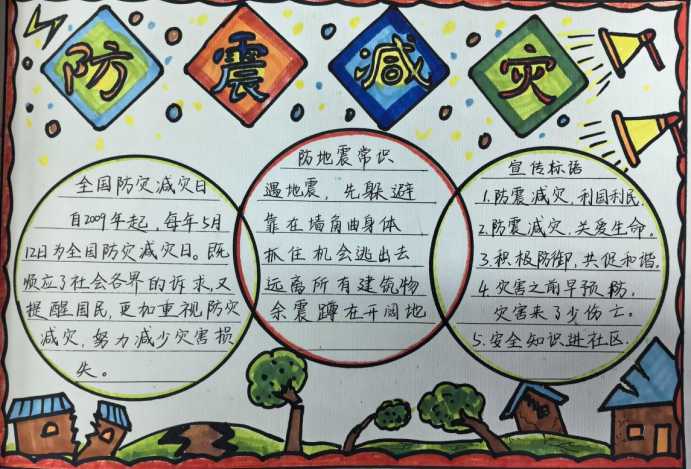 防震减灾
全国防灾减灾日
自2009年起,每年5月
12日为全国防灾减灾日。既
顺应了社会各界的诉求,又
提醒国民,更加重视防灾
减灾,努力减少灾害损
失。
防地震常识
遇地震,先躲避
靠在墙角曲身体
抓住机会逃出去
远离所有建筑物
余震蹲在开阔地
宣传标语
1.防震减灾,利国利民.
2.防震减灾,关爱生命.
3.积极防御,共促和谐.
4.灾害之前早预防,
灾害来了少伤亡。
5.安全知识进社区.